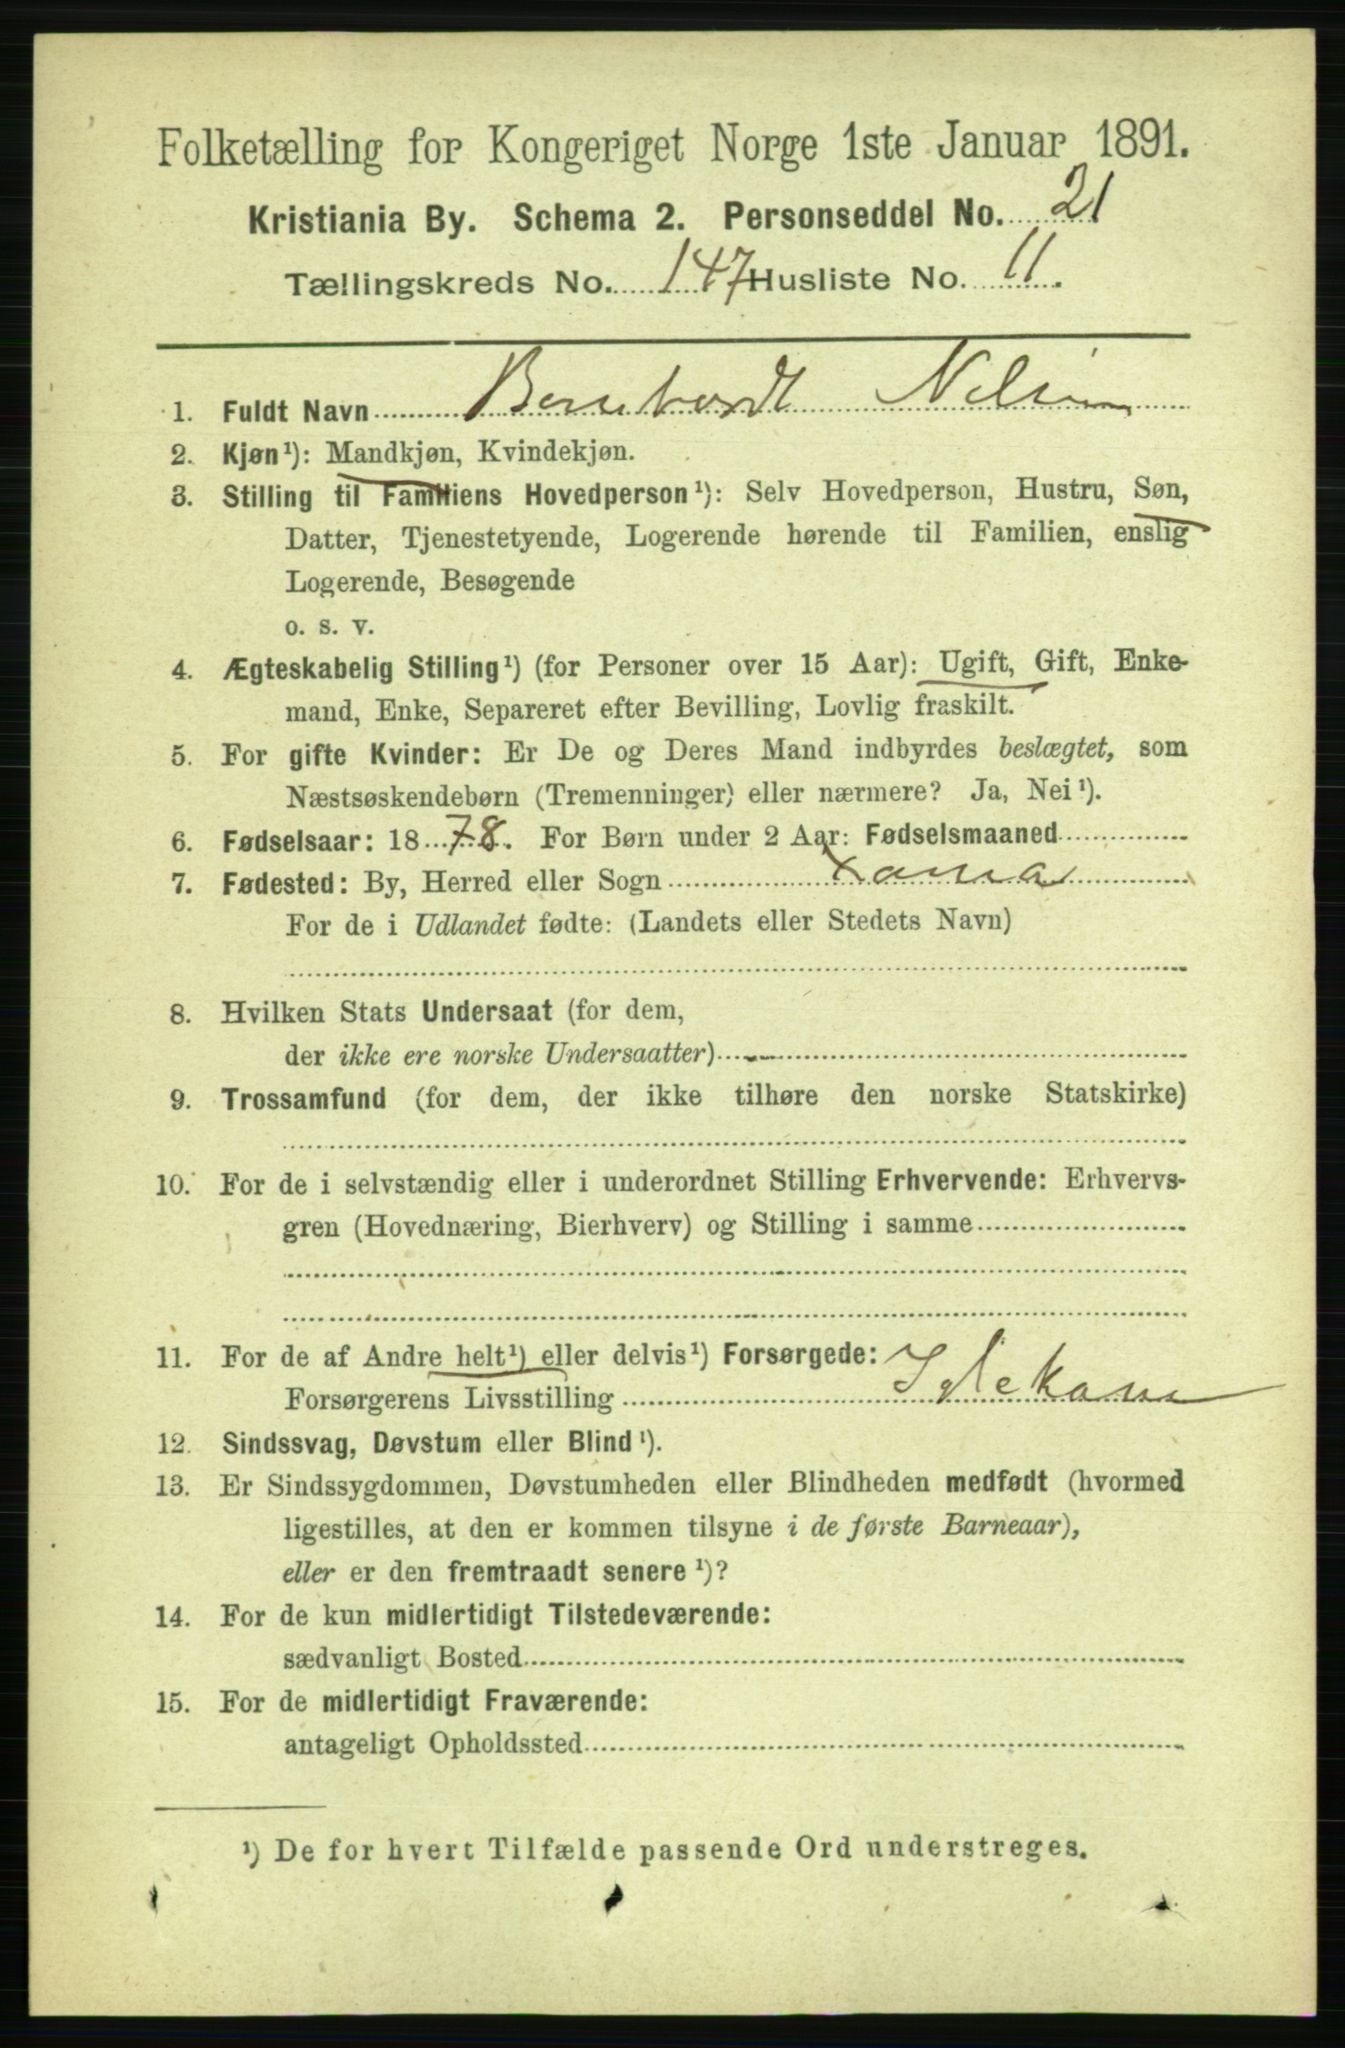 Folketælling for Kongeriget Norge 1ste Januar 1891.
Kristiania By. Schema 2. Personseddel No. 21
Tællingskreds No. 147 Husliste No. 11.
1. Fuldt Navn Bernhardt
2. Kjøn¹): Mandkjøn, Kvindekjøn.
3. Stilling til Familiens Hovedperson¹): Selv Hovedperson, Hustru, Søn,
Datter, Tjenestetyende, Logerende hørende til Familien, enslig
Logerende, Besøgende
o. s. v.
4. Ægteskabelig Stilling¹) (for Personer over 15 Aar): Ugift, Gift, Enke-
mand, Enke, Separeret efter Bevilling, Lovlig fraskilt.
5. For gifte Kvinder: Er De og Deres Mand indbyrdes beslægtet, som
Næstsøskendebørn (Tremenninger) eller nærmere? Ja, Nei¹).
6. Fødselsaar: 1878. For Børn under 2 Aar: Fødselsmaaned
7. Fødested: By, Herred eller Sogn Xania
For de i Udlandet fødte: (Landets eller Stedets Navn)
8. Hvilken Stats Undersaat (for dem,
der ikke ere norske Undersaatter)
9. Trossamfund (for dem, der ikke tilhøre den norske Statskirke)
10. For de i selvstændig eller i underordnet Stilling Erhvervende: Erhvervs-
gren (Hovednæring, Bierhverv) og Stilling i samme
11. For de af Andre helt¹) eller delvis¹) Forsørgede:
Forsørgerens Livsstilling
12. Sindssvag, Døvstum eller Blind¹).
13. Er Sindssygdommen, Døvstumheden eller Blindheden medfødt (hvormed
ligestilles, at den er kommen tilsyne i de første Barneaar),
eller er den fremtraadt senere¹)?
14. For de kun midlertidigt Tilstedeværende:
sædvanligt Bosted
15. For de midlertidigt Fraværende:
antageligt Opholdssted
¹) De for hvert Tilfælde passende Ord understreges.